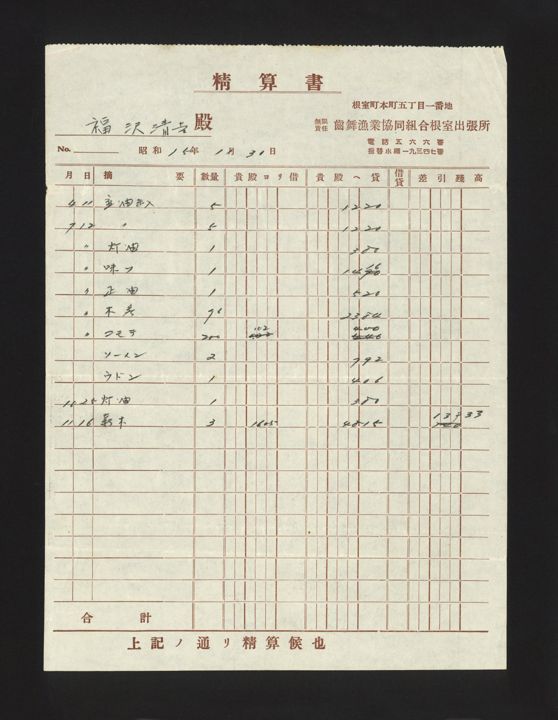 精算書
根室町本町五丁目一番地
福沢清吉殿
無限責任 歯舞漁業協同組合根室出張所
電話五六六番
振替小樽一九三四七番
No. 昭和15年12月31日
月 日 摘要 数量 貴殿ヨリ借 貴殿ヘ貸 借貸 差引残高
4 11 5 1220
9 12 〃 5 1220
〃 灯油 1 380
〃 味ソ 1
〃 正油 1 520
〃 木炭 2384
〃
ソーメン 2 992
ウドン 1 406
25 灯油 1 380
11 16 薪木 3 1605 4815
合計
上記ノ通リ精算候也